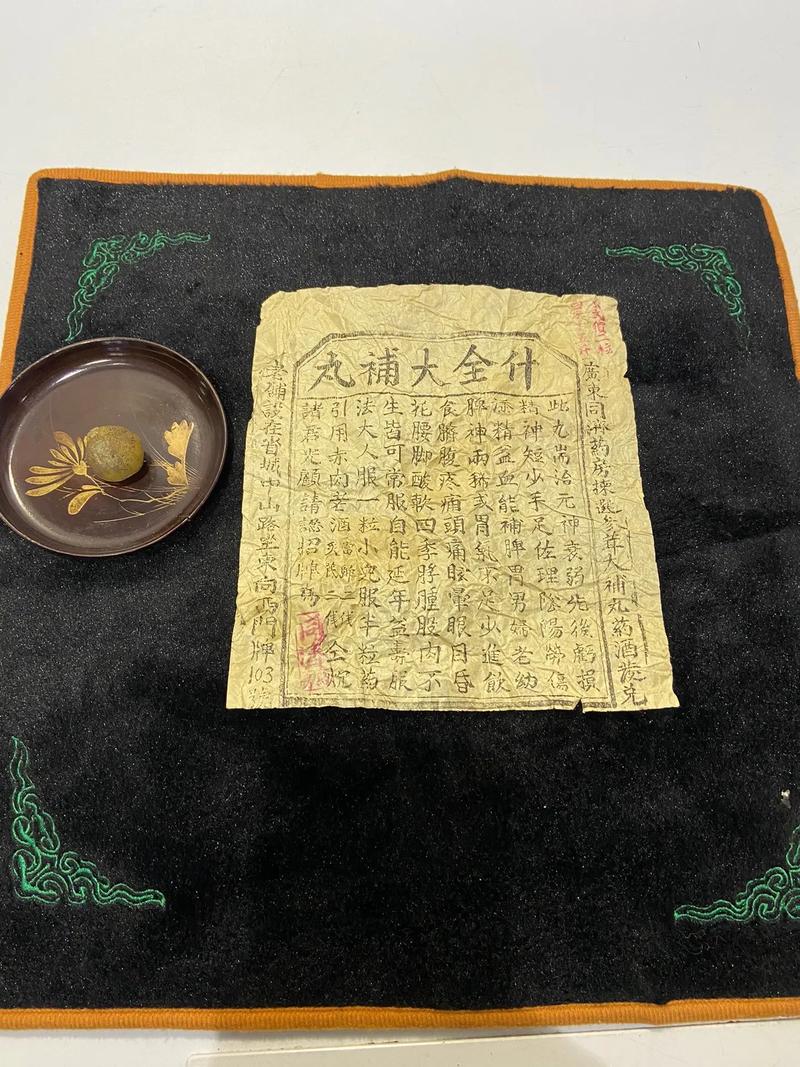 什全大補丸
廣東同濟药房揀選參茸大補丸药酒發兑
此丸耑治元神衰弱先後虧損
精神短少手足佐理陰陽勞傷
添精益血能補脾胃男婦老幼
脾神兩 或胃氣不足少進飲
食臍腹疼痛頭痛眩暈眼目昏
花腰脚酸軟四季脬腫股肉不
生皆可常服自能延年益壽服
法大人服一粒小兒服半粒
引用赤肉 酒
諸君光顧請認招牌
同濟
舖設在省城中山路坐東向西門牌103